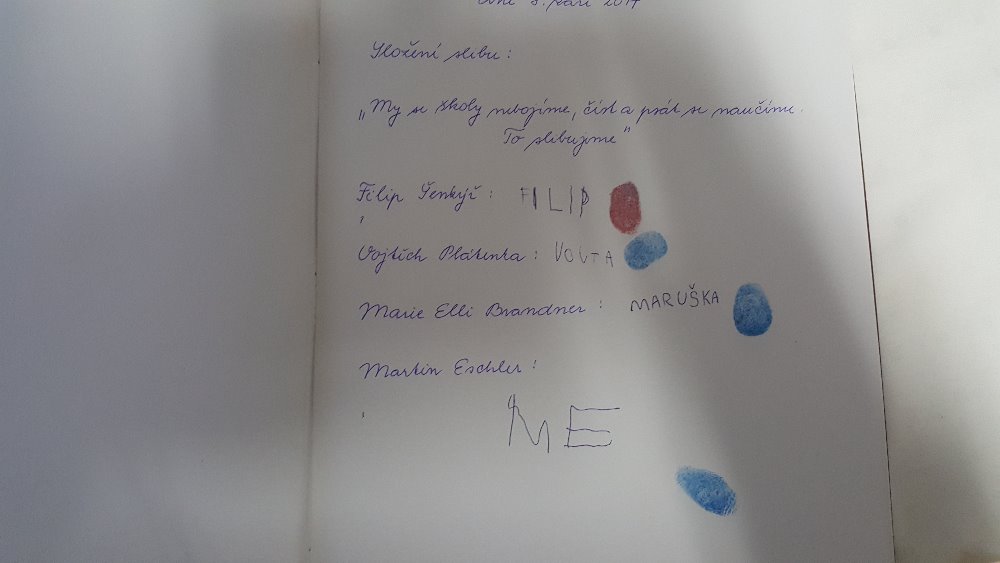 dne 3. září 2017
Složení slibu:
„My se školy nebojíme, číst a psát se naučíme.
To slibujeme"
Filip Šenkýř: FILIP
Vojtěch Plátenka: VOJTA
Marie Elli Brandner: MARUŠKA
Martin Eschler:
ME